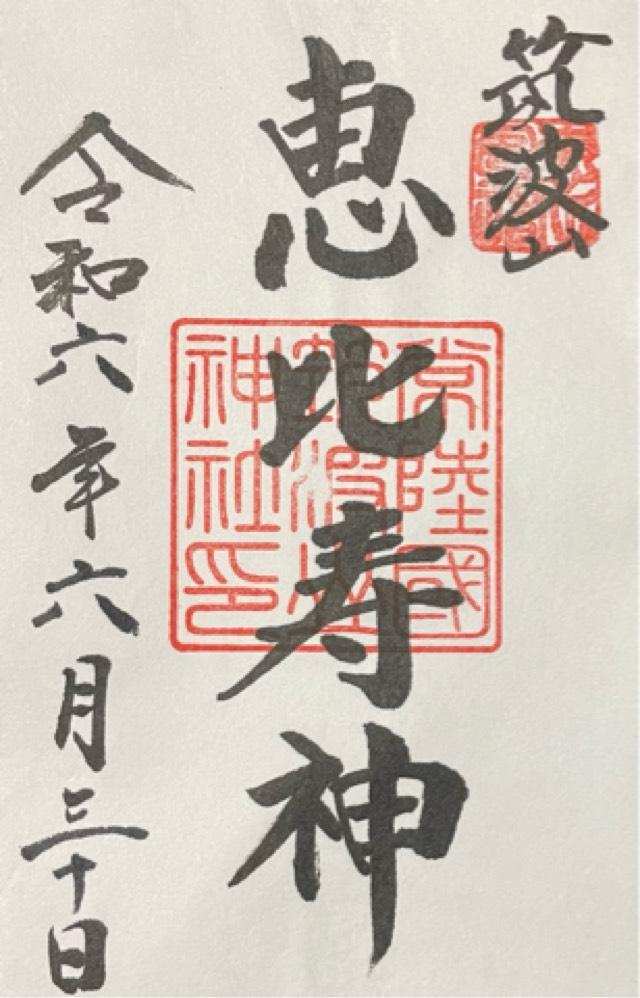 筑波山
恵比寿神
常陸國
筑波山
神社印
令和六年六月三十日